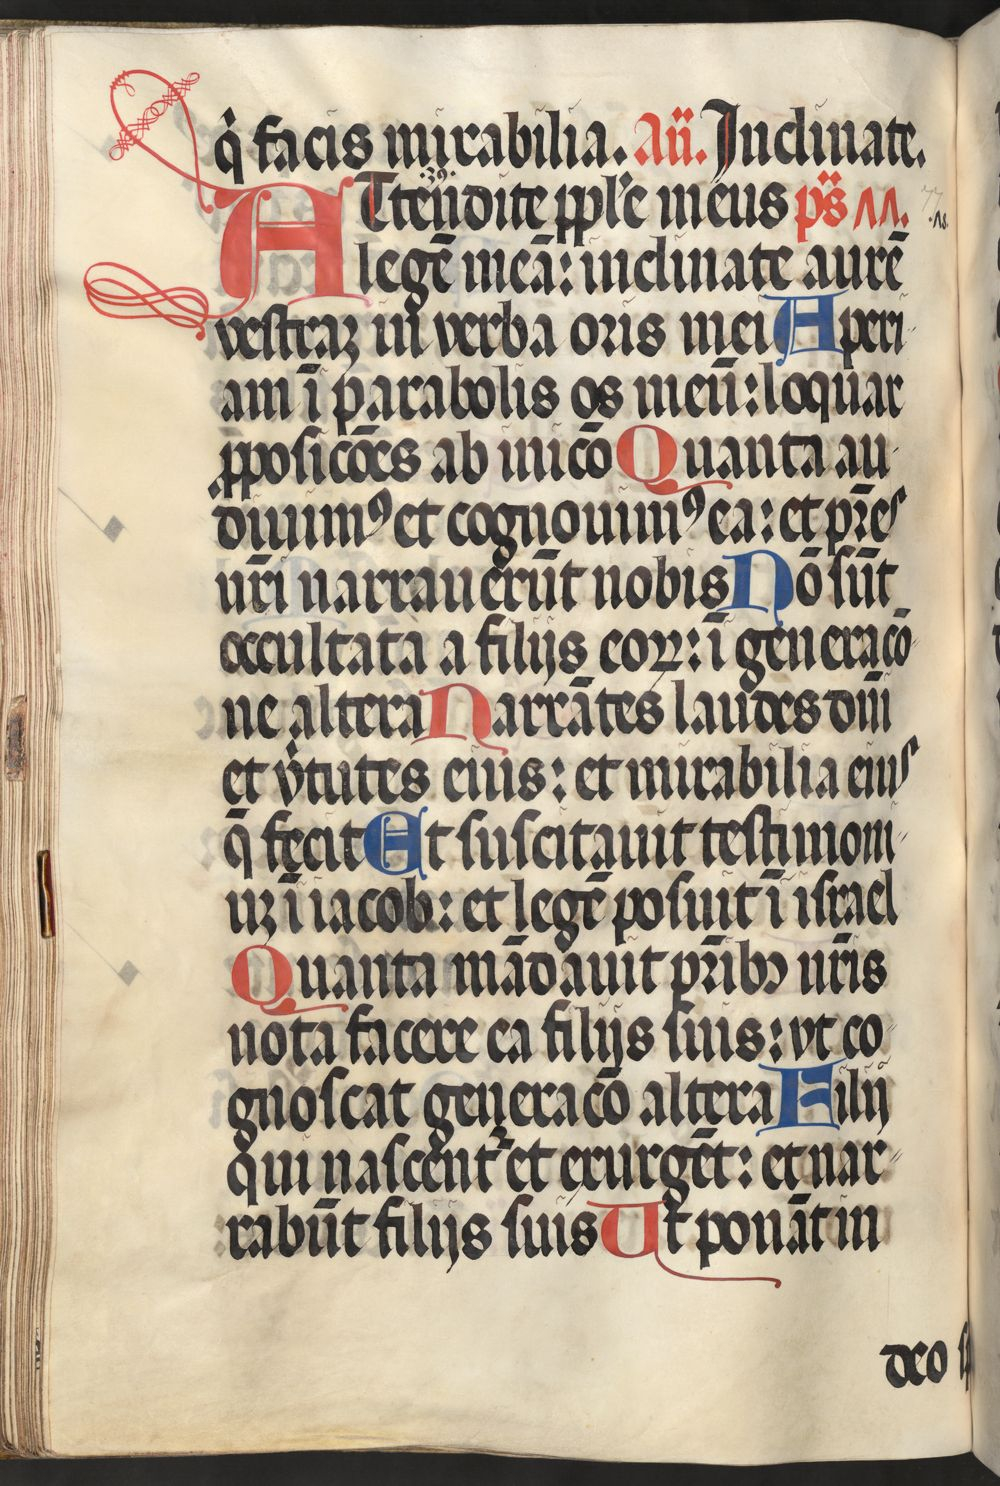 q̇ facis mirabilia. Añ. Inclinate.
ATtēdite pple meus ps ɅɅ.
legē meā: inclinate aurē
vestraꝫ in verba oris mei Aperi
am ī parabolis os meū: loquar
ꝓposicōes ab inicō Quanta au
diuimꝰ et cognouimꝰ ea: et pr̄es
nr̄i narrauerūt nobis Nō sūt
occultata a filijs eoꝝ: ī generacō
ne altera Narrātes laudes dn̄i
et v̓tutes eius: et mirabilia eius
q̄ fecit Et suscitauit testimoni
uꝫ ī iacob: et legē posuit ī israel
Quanta mādauit pr̄ibꝫ nr̄is
nota facere ea filijs suis: vt co
gnoscat generacō altera Filij
qui nascent᷑ et exurgēt: et nar
rabūt filijs suis Ut ponāt in
deo